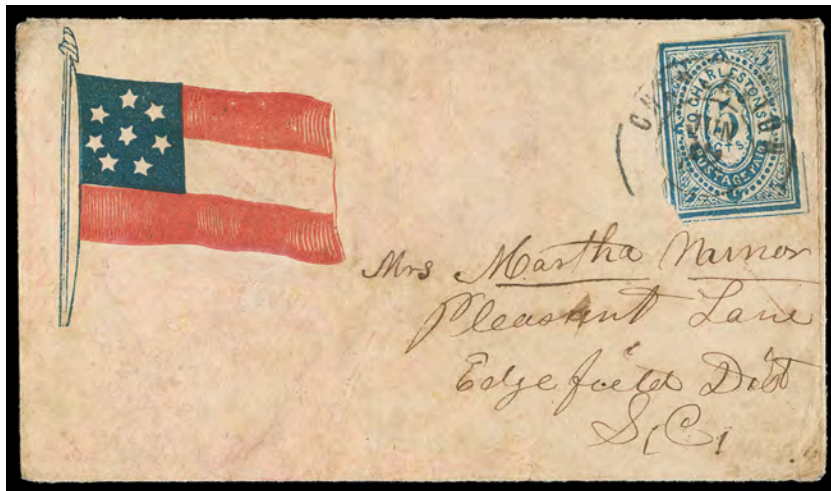 P.O. CHARLESTON S.C.
5
CTS.
POSTAGE PAID
Mrs Martha Warnor
Pleasant Lane
Edgefield Dist
S.C.